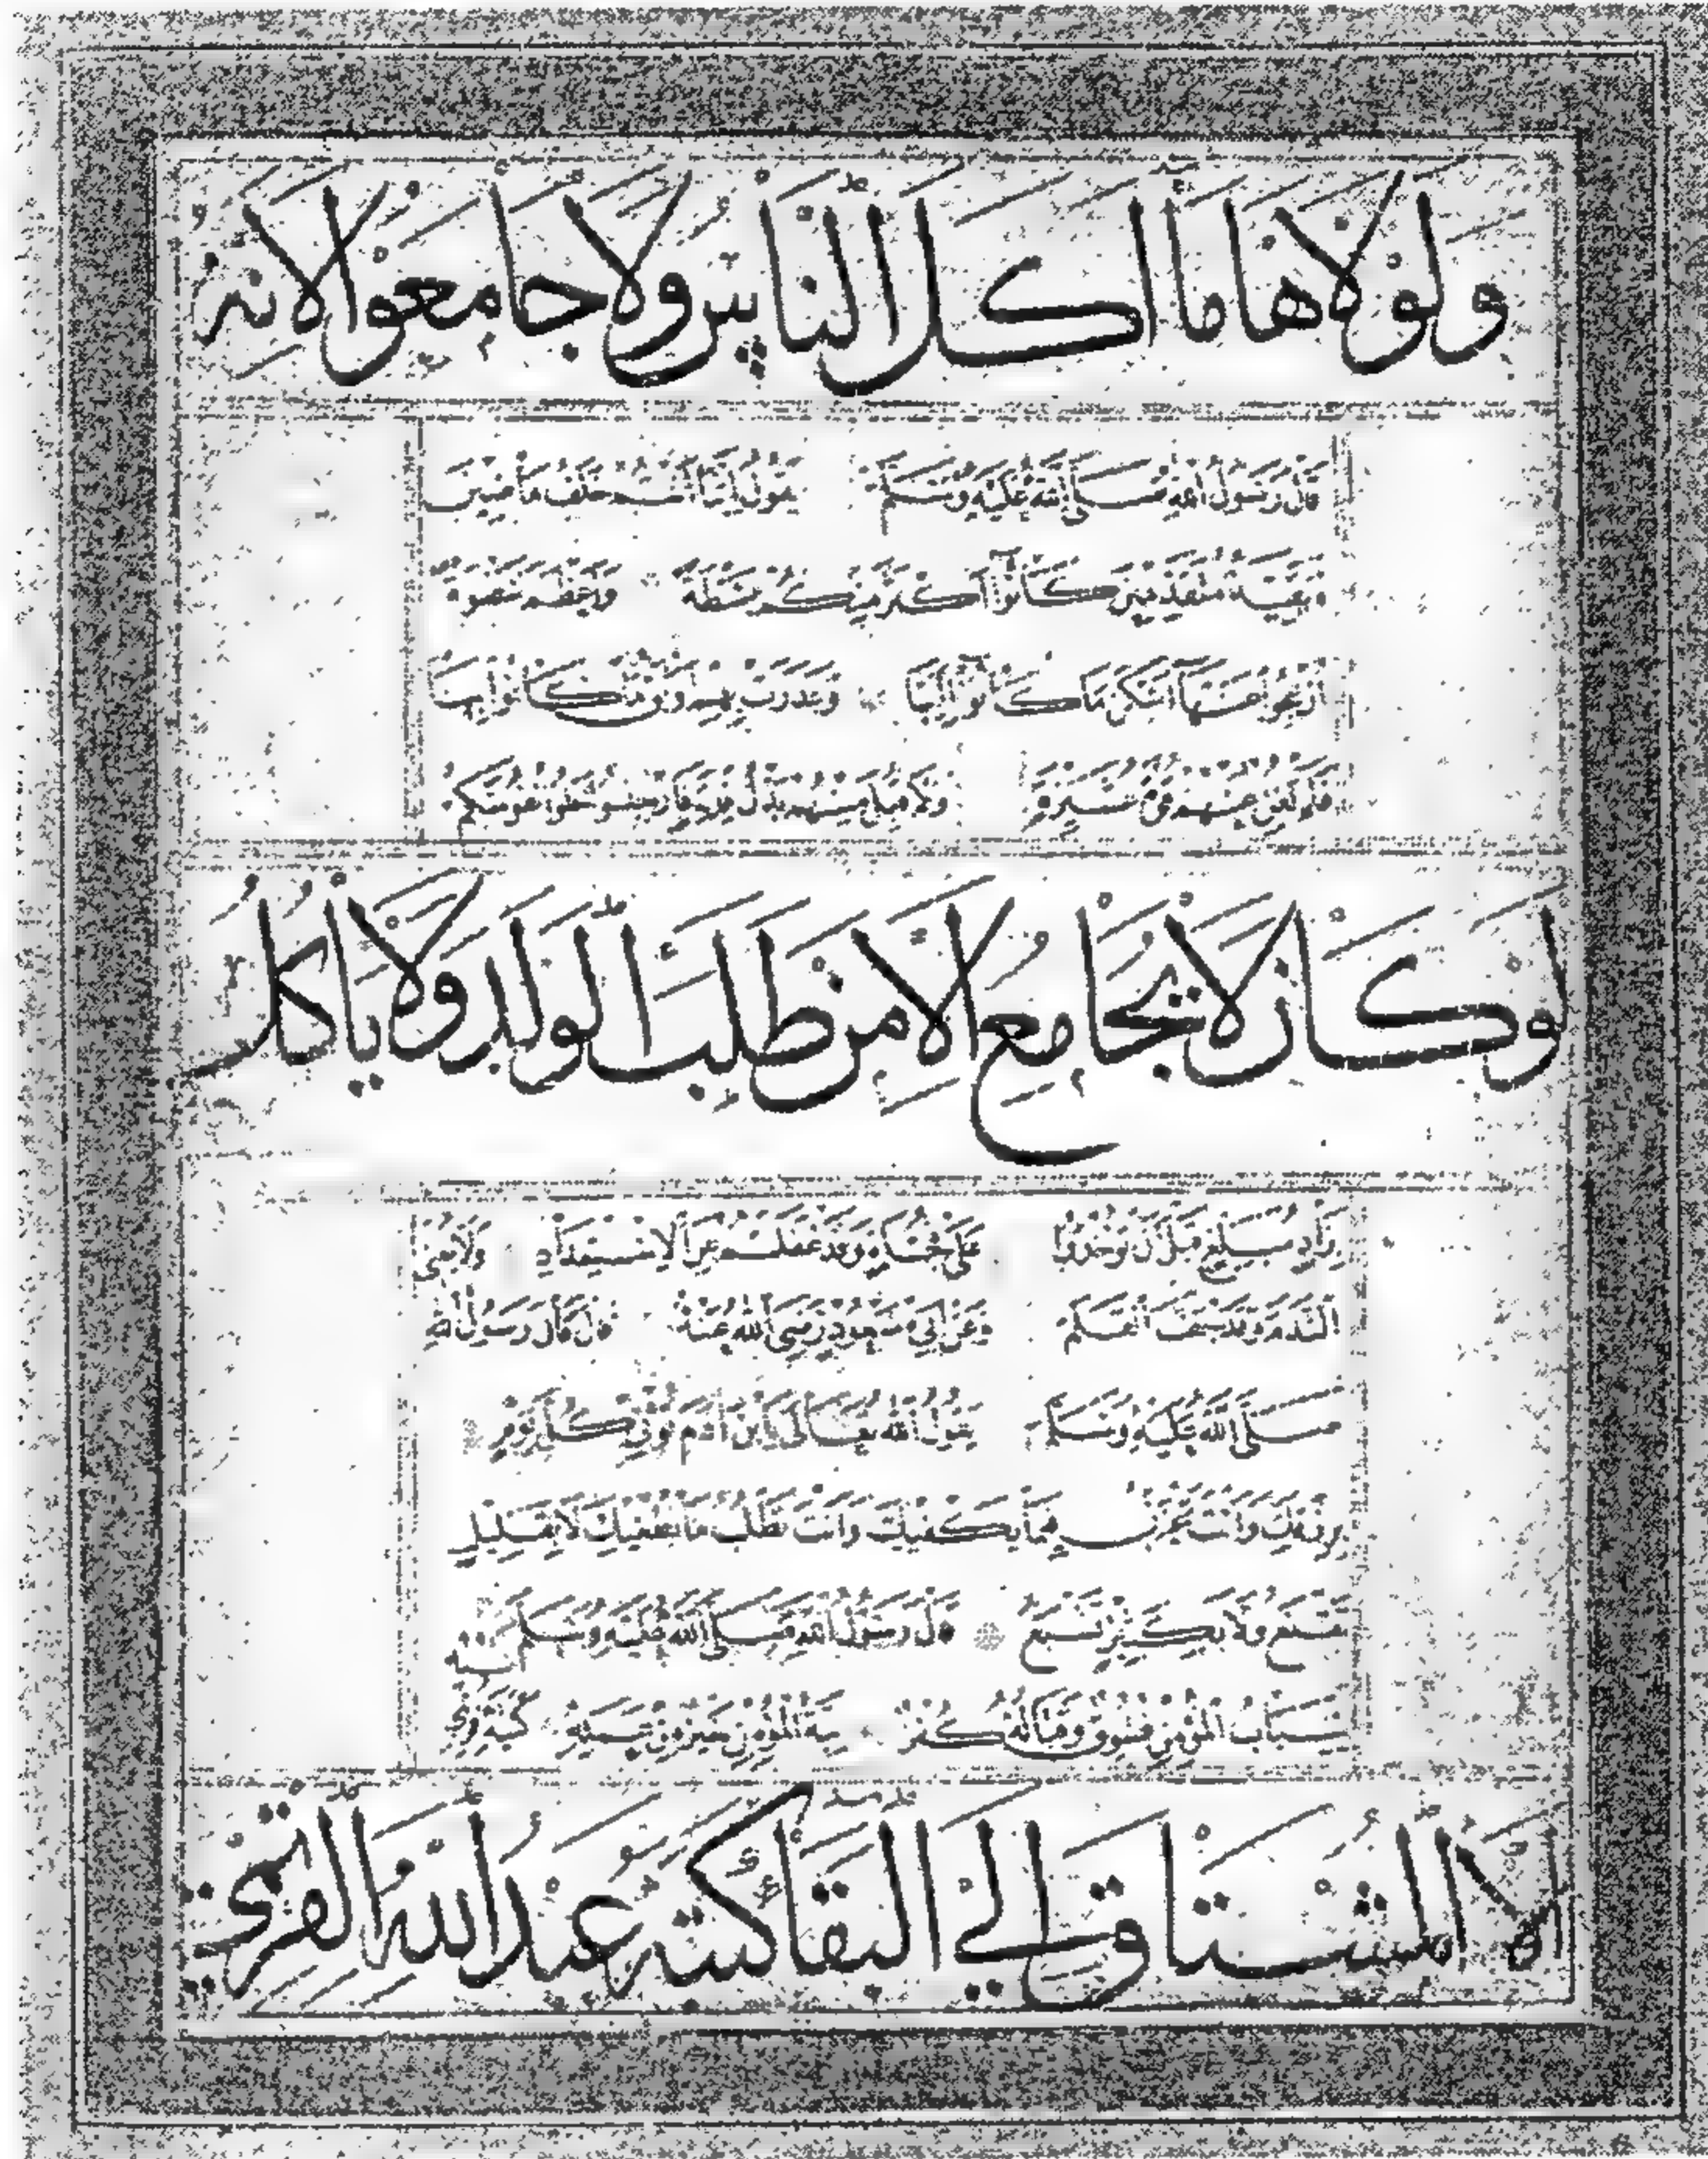 ولولاها ما اكل الناس ولا جامعوا لانه
قال رسول الله صلى الله عليه وسلم يقول انما انتم خلف ماضين
وبقية متقدمين كانوا اكثر منكم بسطة واعظم سطوة
ازعجوا عنها اسكن ما كانوا اليها وغدرت بهم اوثق ما كانوا بها
فلم تغن عنهم عشيرة ولا قبل منهم بذل فدية
لو كان لا يجامع الا من طلب الولد ولا ياكل
بزاد مبلغ قبل ان توخذوا على وقد غفلتم عن الاستعداد ولا يغني
الندم وقد القلم وعن ابن مسعود رضي الله عنه قال قال رسول الله
صلى الله عليه وسلم يقول الله تعالى يا ابن ادم توتى كل يوم
برزقك وانت تحزن فيما يكفيك وانت تطلب ما يطغيك لا بقليل
تقنع ولا بكثير تشبع قال رسول الله صلى الله عليه وسلم
سباب المؤمن فسوق وقتاله كفر نية المؤمن خير من عمله
الا المشتاق الى البقا كتبه عبد الله